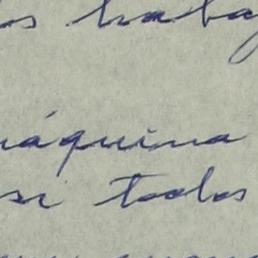 os traba
máquina
si todos